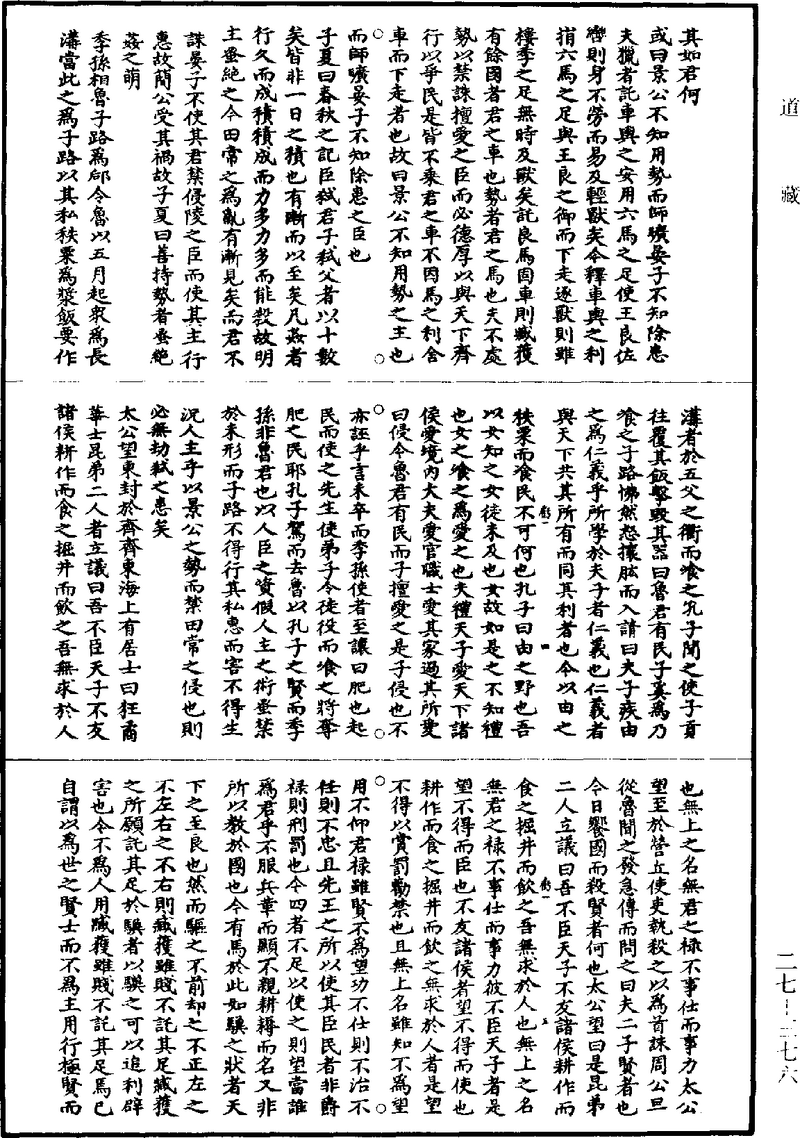 道藏
其如君何
或曰景公不知用勢而師曠晏子不知除患
夫獵者託車輿之安用六馬之足使王良佐
轡則身不勞而易及輕獸矣今釋車輿之利
捐六馬之足與王良之御而下走逐獸則雖
樓季之足無時及獸矣託良馬固車則臧獲
有餘國者君之車也勢者君之馬也夫不處
勢以禁誅擅愛之臣而必德厚以與天下齊
行以爭民是皆不乘君之車不因馬之利舍
車而下走者也故曰景公不知用勢之主也
而師曠晏子不知除患之臣也
子夏曰春秋之記臣弒君子弒父者以十數
矣皆非一日之積也有漸而以至矣凡姦者
行久而成積積成而力多力多而能殺故明
主蚤絕之今田常之為亂有漸見矣而君不
誅晏子不使其君禁侵陵之臣而使其主行
惠故簡公受其禍故子夏曰善持勢者蚤絕
姦之萌
季孫相魯子路為郈令魯以五月起衆為長
溝當此之為子路以其私秩粟為漿飯要作
溝者於五父之衢而飡之孔子聞之使子貢
往覆其飯擊毀其器曰魯君有民子奚為乃
飡之子路怫然怒攘肱而入請曰夫子疾由
之為仁義乎所學於夫子者仁義也仁義者
與天下共其所有而同其利者也今以由之
秩粟而飡民不可何也孔子曰由之野也吾
以女知之女徒未及也女故如是之不知禮
也女之飡之為愛之也夫禮天子愛天下諸
侯愛境內大夫愛官職士愛其家過其所愛
曰侵今魯君有民而子擅愛之是子侵也不
亦誣乎言未卒而季孫使者至讓曰肥也起
民而使之先生使弟子令徒役而飡之將奪
肥之民耶孔子駕而去魯以孔子之賢而季
孫非魯君也以人臣之資假人主之術蚤禁
於未形而子路不得行其私惠而害不得生
況人主乎以景公之勢而禁田常之侵也則
必無劫弒之患矣
太公望東封於齊齊東海上有居士曰狂矞
華士昆弟二人者立議曰吾不臣天子不友
諸侯耕作而食之掘井而飲之吾無求於人
也無上之名無君之祿不事仕而事力太公
望至於營丘使吏執殺之以為首誅周公旦
從魯聞之發急傳而問之曰夫二子賢者也
今日饗國而殺賢者何也太公望曰是昆弟
二人立議曰吾不臣天子不友諸侯耕作而
食之掘井而飲之吾無求於人也無上之名
無君之祿不事仕而事力彼不臣天子者是
望不得而臣也不友諸侯者望不得而使也
耕作而食之掘井而飲之無求於人者是望
不得以賞罰勸禁也且無上名雖知不為望
用不仰君祿雖賢不為望功不仕則不治不
任則不忠且先王之所以使其臣民者非爵
祿則刑罰也今四者不足以使之則望當誰
為君乎不服兵革而顯不親耕耨而名又非
所以教於國也今有馬於此如驥之狀者天
下之至良也然而驅之不前却之不正左之
不左右之不右則臧獲雖賤不託其足臧獲
之所願託其足於驥者以驥之可以追利辟
害也今不為人用臧獲雖賤不託其足焉已
自謂以為世之賢士而不為主用行極賢而
二七-三七六